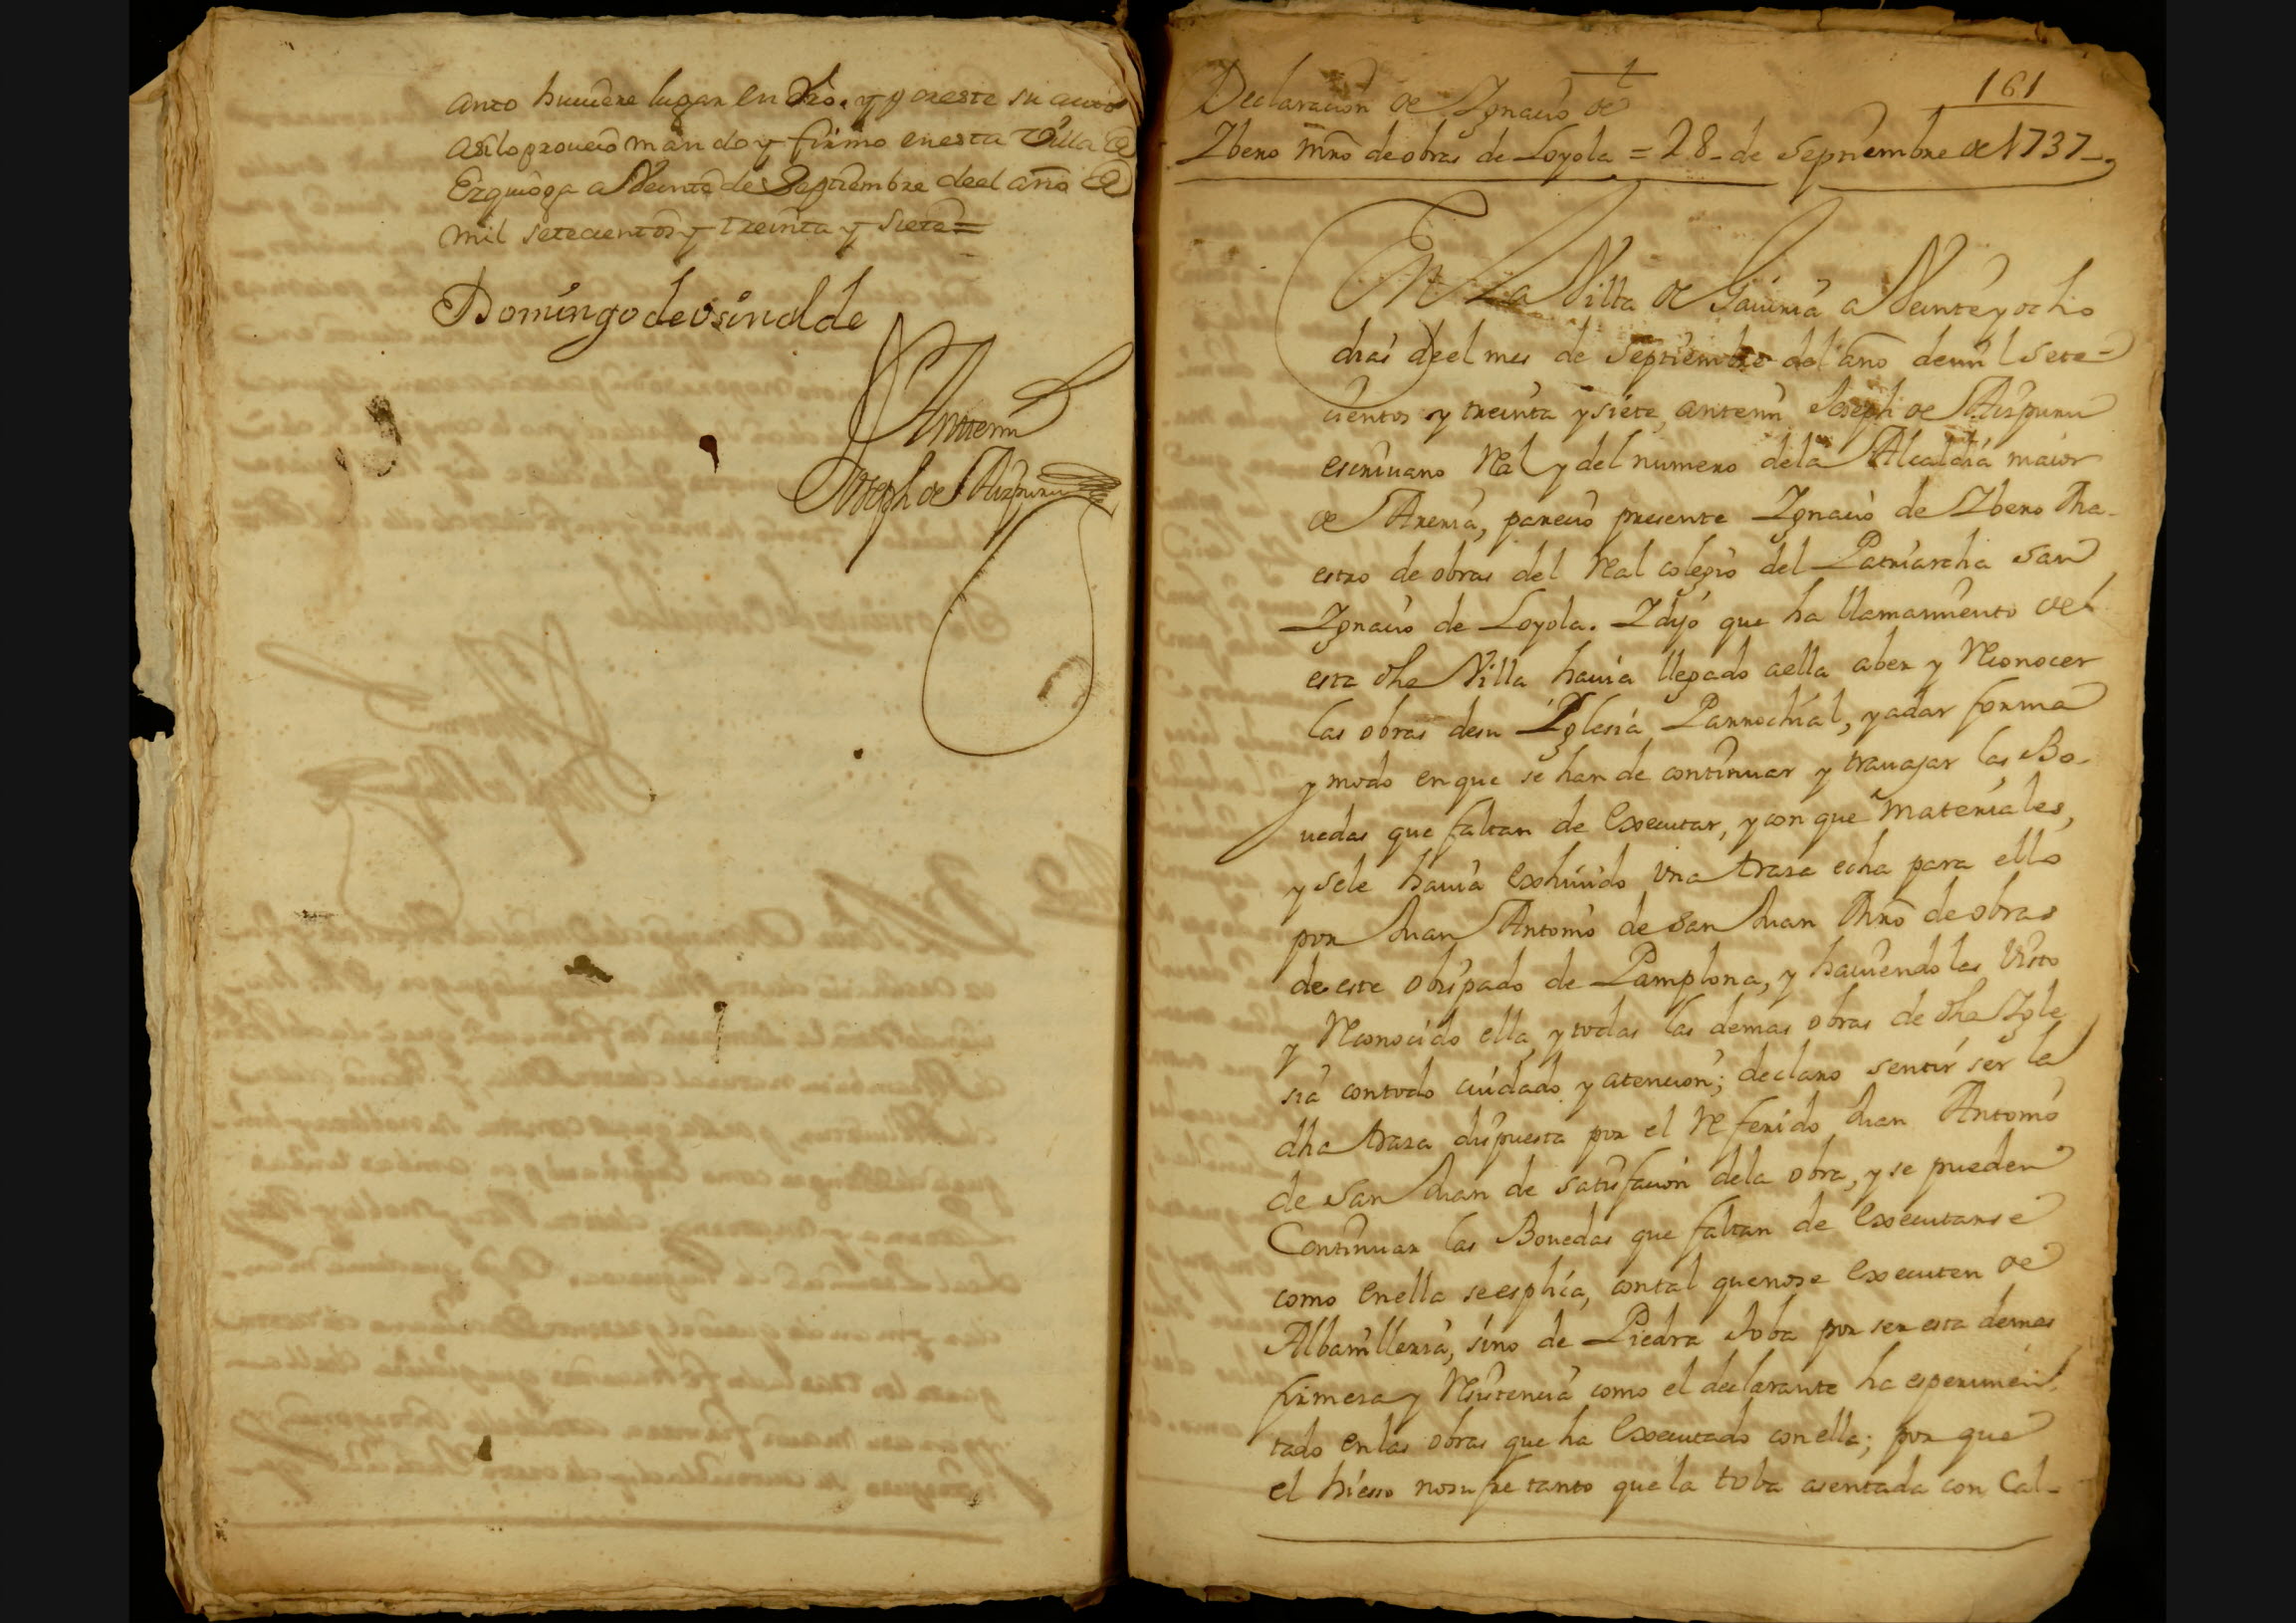 anto huuiere lugar en dro. y por este su auto
asilo proueio mando y firmo en esta Villa de
Ezquioga a Veinte de Septiembre de el año de
mil setecientos y treinta y siete=
Domingo de Usinalde
Antemi
Joseph de Aizpuru
161
Declaracion de Ignacio de
Ibero mro de obras de Loyola = 28 - de septiembre de 1737 -
En La Villa de Gauiria a Veinte y ocho
dias de el mes de septiembre del año de mil sete=
cientos y treinta y siete, antemi Joseph de Aizpuru
escriuano Real y del numero dela Alcaldia maior
de Areria, parecio presente Ignacio de Ibero Ma-
estro de obras del Real colegio del Patriarcha san
Ignacio de Loyola. I dijo que ha llamamiento de
esta dha Villa hauia llegado aella aber y Reconocer
las obras desu Iglesia Parrochial, y adar forma
y modo en que se han de continuar y trauajar las Bo-
uedas que faltan de Executar, y con que materiales,
y sele hauia exhiuido vna traza echa para ello
por Juan Antonio de San Juan Mro de obras
de este obispado de Pamplona, y hauiendolas visto
y Reconocido ella, y todas las demas obras de dha Igle
sia contodo cuidado y atencion; declaro sentir ser la
dha traza dispuesta por el Referido Juan Antonio
de San Juan de satisfacion dela obra, y se pueden
Continuar las Bouedas que faltan de Executarse
como en ella se esplica, contal que no se executen de
Albañilleria, sino de Piedra toba por ser esta demas
firmeza y Resistencia como el declarante ha esperimen-
tado enlas obras que ha Executado con ella; por que
el hiesso no sufre tanto que la toba asentada con Cal-